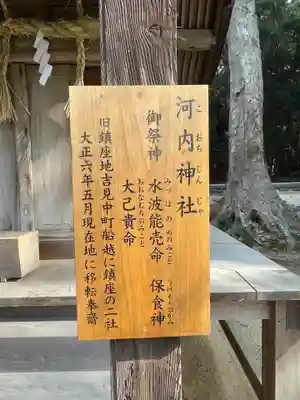 河内神社
こおちじんじゃ
御祭神 水波能売命 保食神
みづはのめのみこと
うけもちのかみ
大己貴命
おおなむちのみこと
旧鎮座地吉見中町船越に鎮座の二社
大正六年五月現在地に移転奉齋